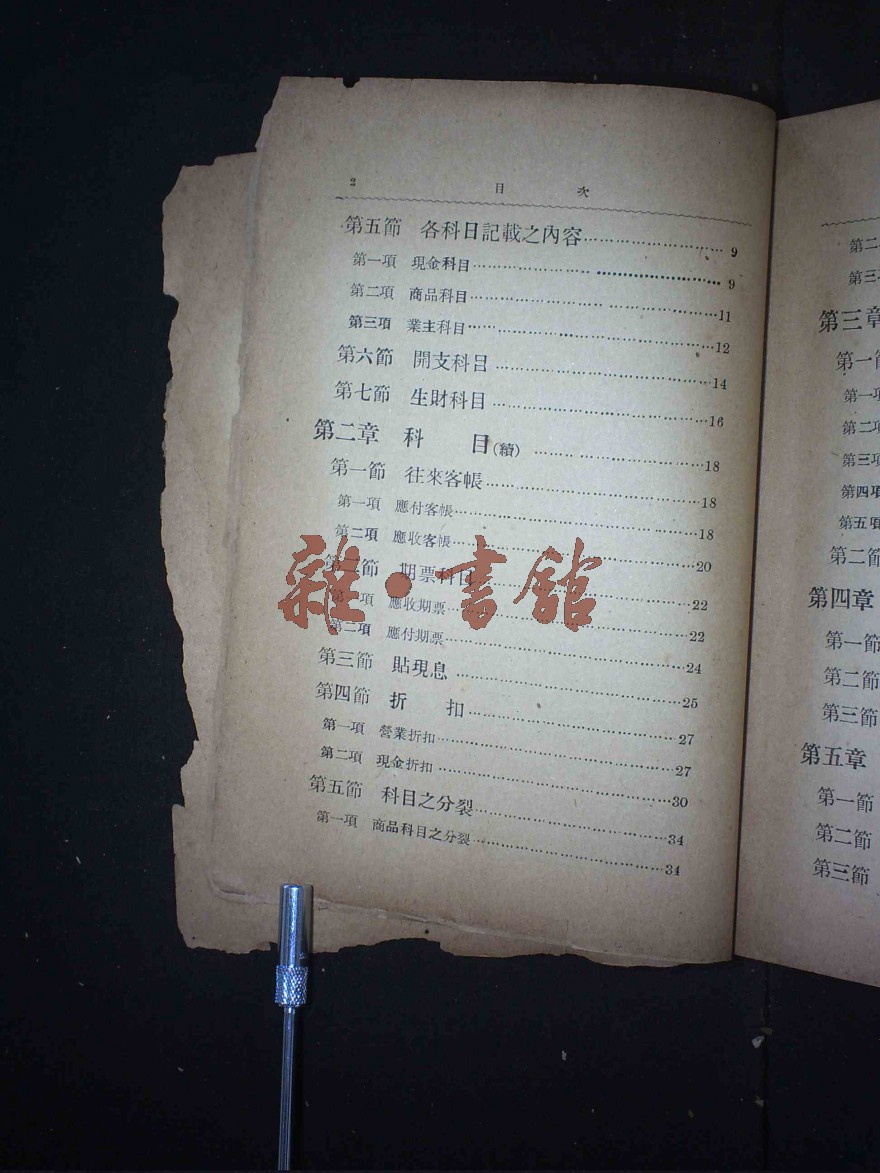 2 目 次
第五節 各科日記載之內容 9
第一項 現金科目 9
第二項 商品科目 11
第三項 業主科目 12
第六節 開支科目 14
第七節 生財科目 16
第二章 科 目(續) 18
第一節 往來客帳 18
第一項 應付客帳 18
第二項 應收客帳 20
第二節 期票科目 22
第一項 應收期票 22
第二項 應付期票 24
第三節 貼現息 25
第四節 折 扣 27
第一項 營業折扣 27
第二項 現金折扣 30
第五節 科目之分裂 34
第一項 商品科目之分裂 34
雜·書館
第二
第三
第三章
第一節
第一項
第二項
第三項
第四項
第五項
第二節
第四章
第一節
第二節
第三節
第五章
第一節
第二節
第三節